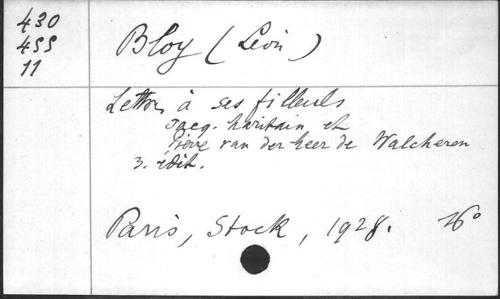 430
455
11
Bloy (Léon)
Lettres à ses filleuls
Jacq. Maritain et
Pierre van der Meer de Walcheren
3. édit.
Paris, Stock, 1928. 16°